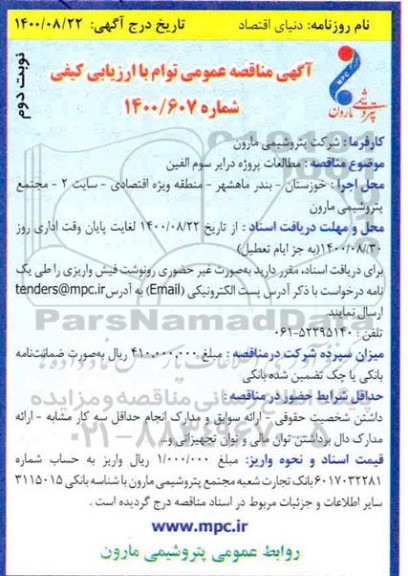 نام روزنامه: دنیای اقتصاد تاریخ درج آگهی: ۱۴۰۰/۰۸/۲۲
نوبت دوم
MPC
پتروشیمی مارون
آگهی مناقصه عمومی توام با ارزیابی کیفی
شماره ۱۴۰۰/۶۰۷
کارفرما : شرکت پتروشیمی مارون
موضوع مناقصه : مطالعات پروژه درایر سوم الفین
محل اجرا : خوزستان - بندر ماهشهر - منطقه ویژه اقتصادی - سایت ۲ - مجتمع
پتروشیمی مارون
محل و مهلت دریافت اسناد : از تاریخ ۱۴۰۰/۰۸/۲۲ لغایت پایان وقت اداری روز
۱۴۰۰/۰۸/۳۰(به جز ایام تعطیل)
برای دریافت اسناد، مقرر دارید به‌صورت غیر حضوری رونوشت فیش واریزی را طی یک
نامه درخواست با ذکر آدرس پست الکترونیکی (Email) به آدرس tenders@mpc.ir
ارسال نمایند.
تلفن : ۵۲۲۹۵۱۴۰-۰۶۱
میزان سپرده شرکت درمناقصه : مبلغ ۴۱۰,۰۰۰,۰۰۰ ریال به‌صورت ضمانت‌نامه
بانکی یا چک تضمین شده بانکی
حداقل شرایط حضور در مناقصه :
داشتن شخصیت حقوقی - ارائه سوابق و مدارک انجام حداقل سه کار مشابه - ارائه
مدارک دال برداشتن توان مالی و توان تجهیزاتی و...
قیمت اسناد و نحوه واریز: مبلغ ۱/۰۰۰/۰۰۰ ریال واریز به حساب شماره
۶۰۱۷۰۳۲۲۸۱ بانک تجارت شعبه مجتمع پتروشیمی مارون با شناسه بانکی ۳۱۱۵۰۱۵
سایر اطلاعات و جزئیات مربوط در اسناد مناقصه درج گردیده است .
www.mpc.ir
روابط عمومی پتروشیمی مارون
ParsNamadData